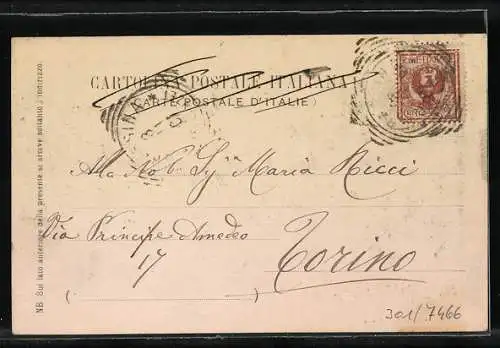 CARTOLINA POSTALE ITALIANA
(CARTE POSTALE D'ITALIE)
Alla Nob. Sig.na Maria Ricci
Via Principe Amedeo
17
Torino
(
)
NB. Sul lato anteriore della presente si scrive soltanto l'indirizzo.
301/7466